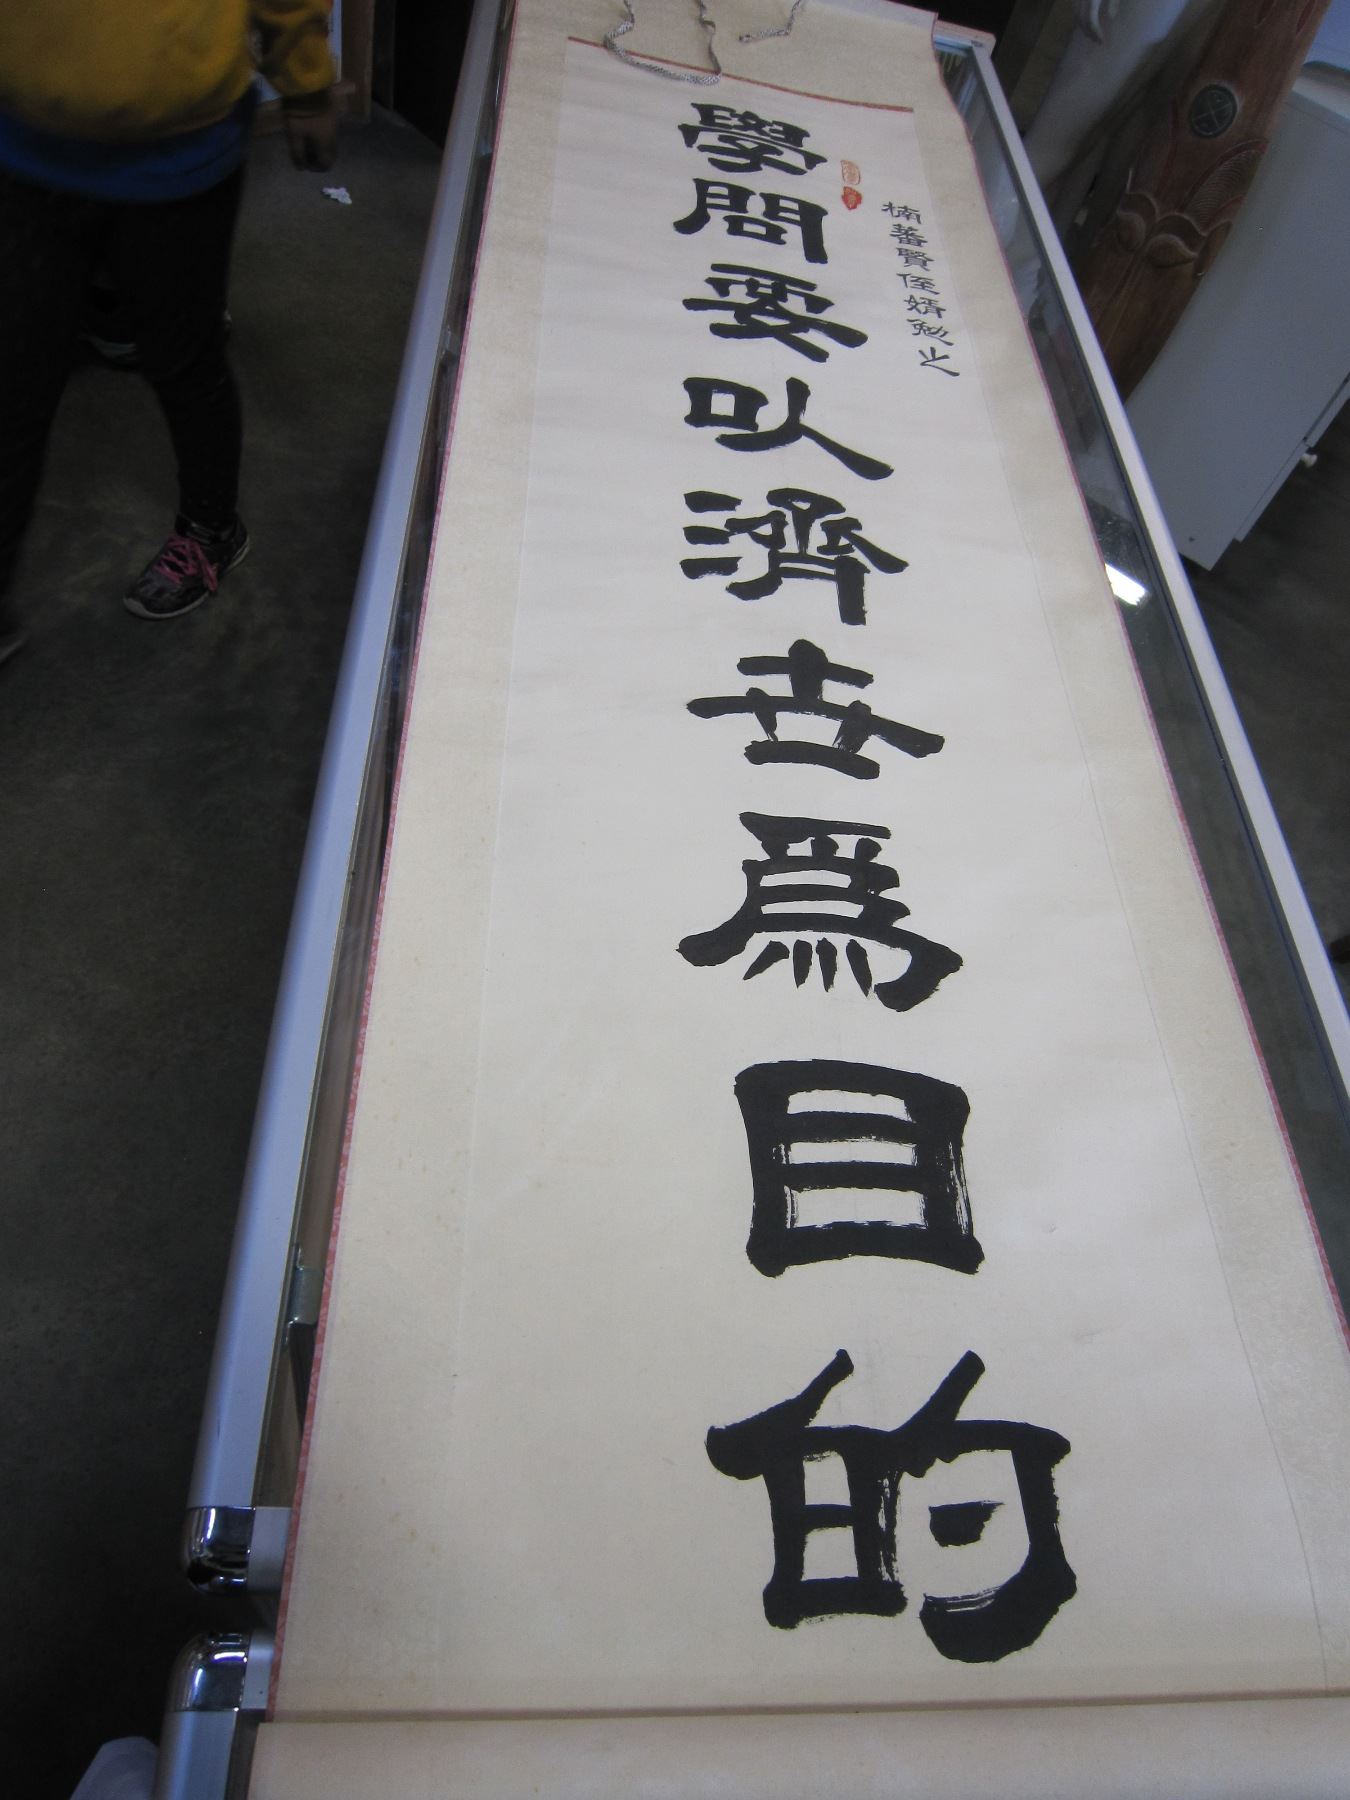 楠蕃賢侄婿勉之
學問要以濟世為目的